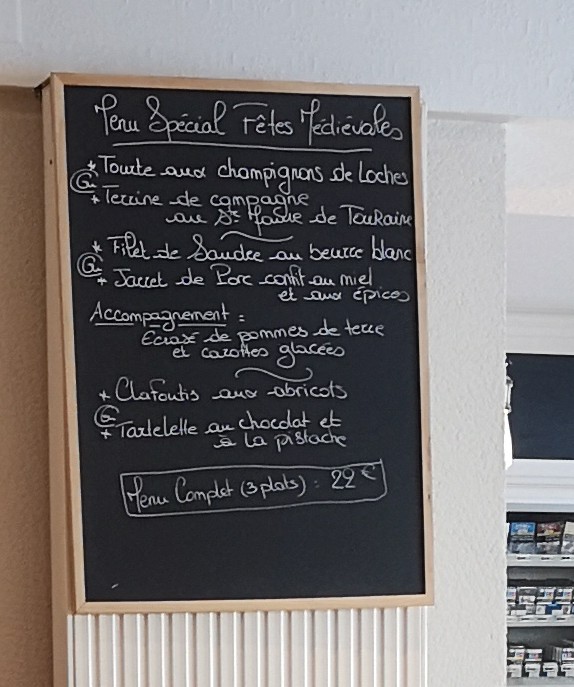 Menu Spécial Fêtes Médiévales
* Tourte aux champignons de Loches
ou
* Terrine de campagne
au Ste Maure de Touraine
* Filet de Sandre au beurre blanc
ou
* Jarret de Porc confit au miel
et aux épices
Accompagnement :
Ecrasé de pommes de terre
et carottes glacées
* Clafoutis aux abricots
ou
* Tartelette au chocolat et
à la pistache
Menu Complet (3 plats) : 22 €